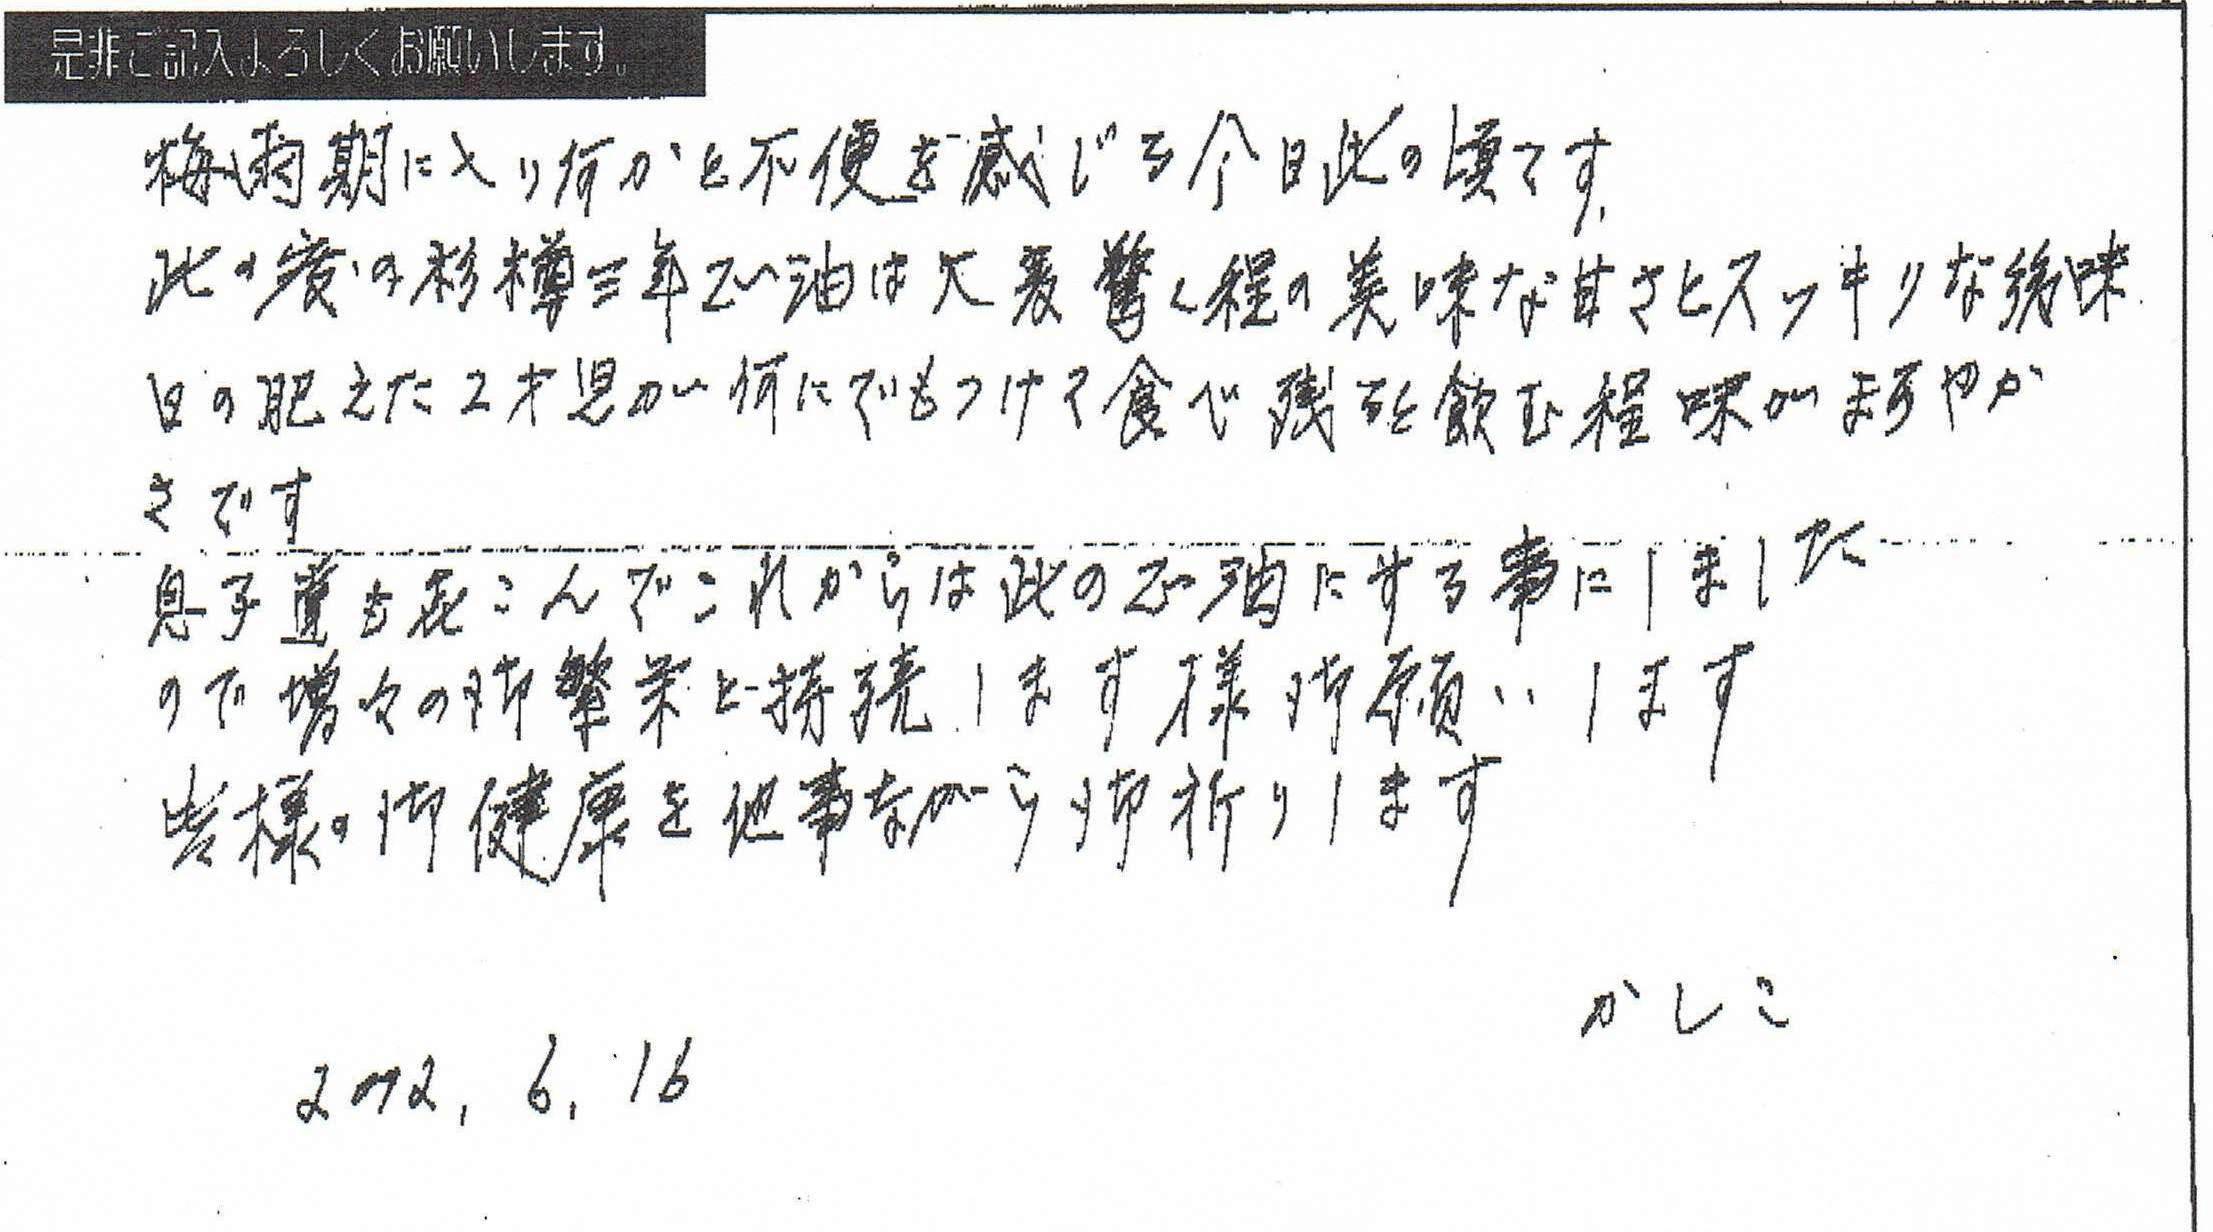 是非ご記入よろしくお願いします。
梅雨期に入り何かと不便を感じる今日此の頃です。
此の度の杉樽三年正油は大変驚く程の美味な甘さとスッキリな後味
口の肥えた2才児が何にでもつけて食べ残ると飲む程味がまろやか
さです
息子達も喜こんでこれからは此の正油にする事にしました
ので増々の御繁栄と持続します様御願いします
皆様の御健康を他事ながら御祈りします
かしこ
6.16